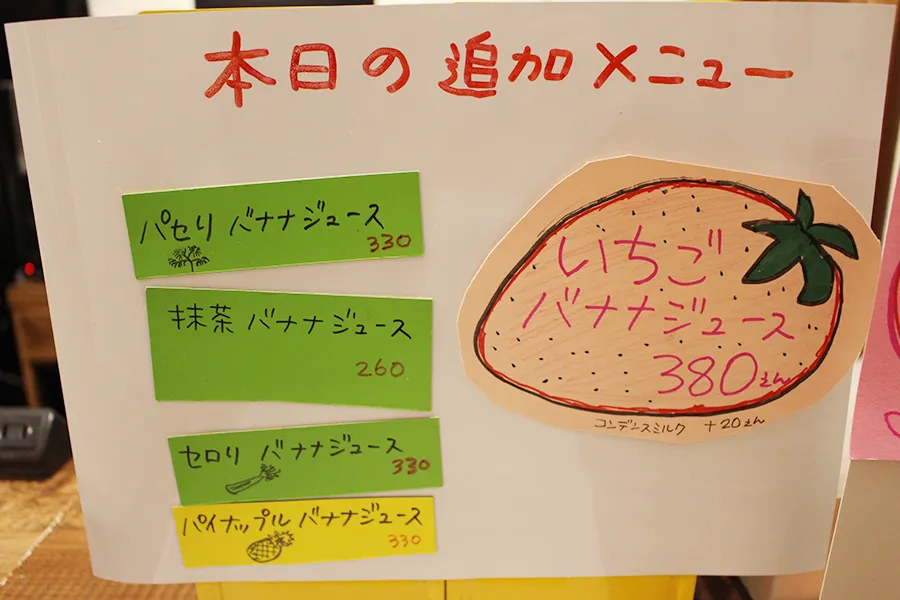 本日の追加メニュー
パセリ バナナジュース
330
抹茶 バナナジュース
260
セロリ バナナジュース
330
パイナップル バナナジュース
330
いちご
バナナジュース
380えん
コンデンスミルク +20えん